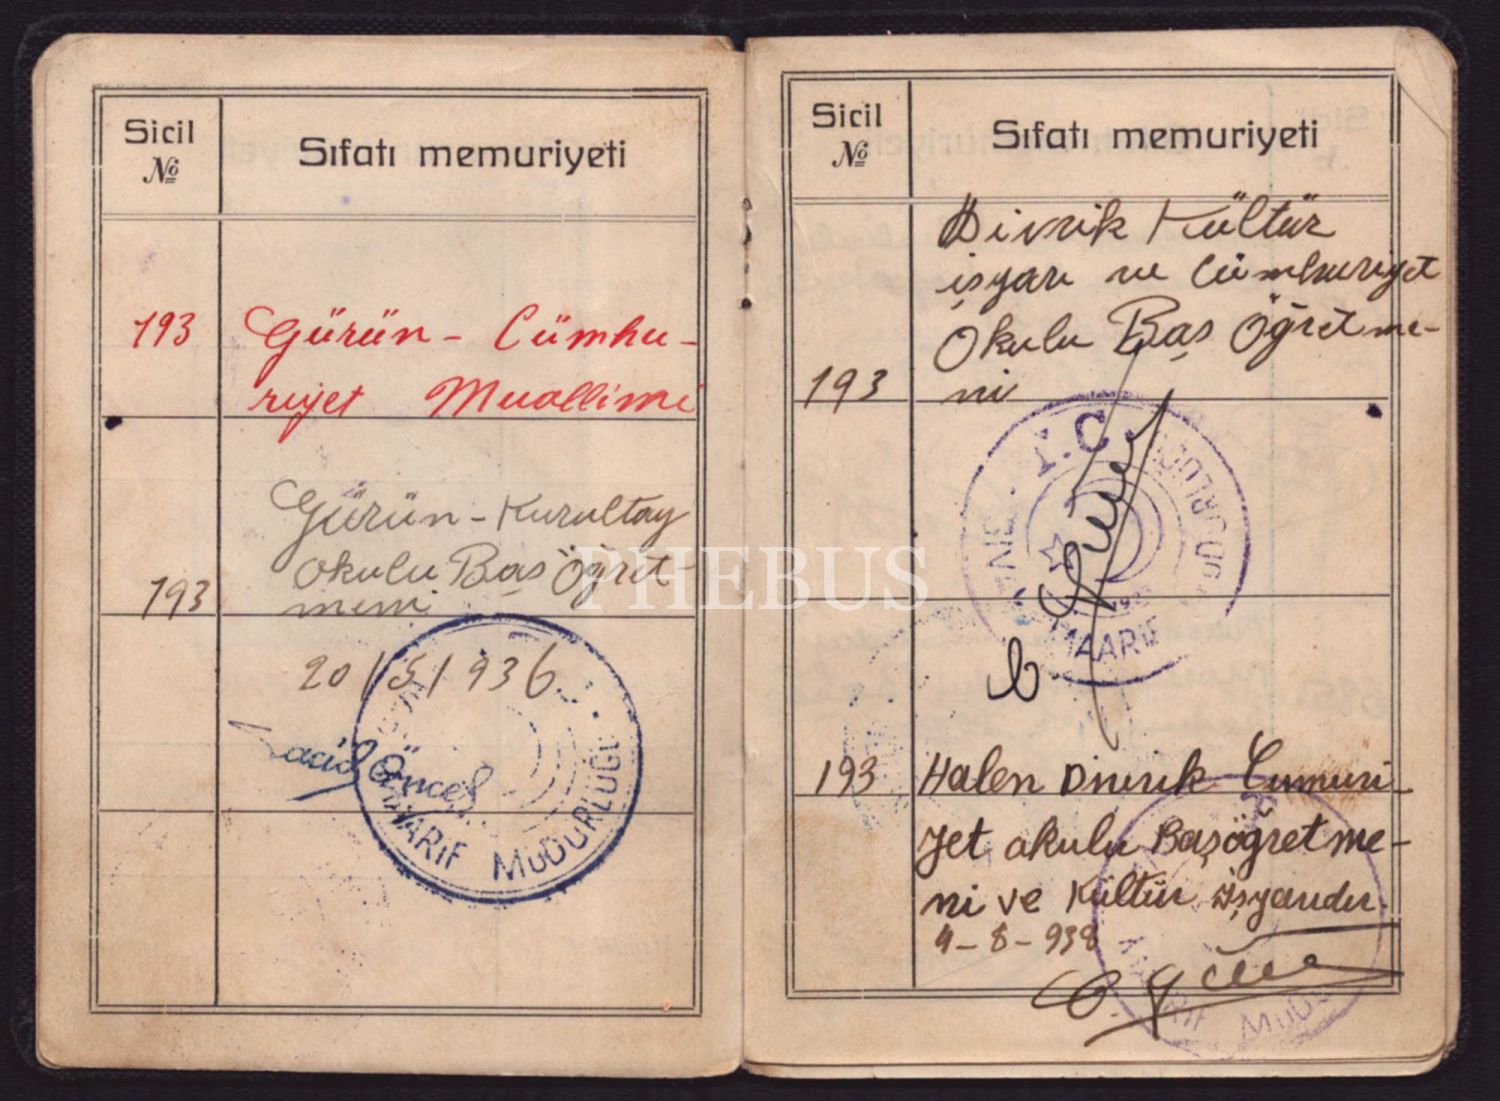 Sicil
№
Sıfatı memuriyeti
193
Gürün - Cümhu-
riyet Muallimi
Gürün - Kurultay
Okulu Baş Öğret-
meni
193
20/5/936
Öncel
MAARİF MÜDÜRLÜĞÜ
Sicil
№
Sıfatı memuriyeti
Divrik Kültür
işyarı ve Cümhuriyet
Okulu Baş Öğretme-
ni
193
T.C.
MAARİF
193
Halen Divrik Cumuri
yet okulu Başöğretme-
ni ve Kültür işyarıdır.
4-8-938
PHEBUS